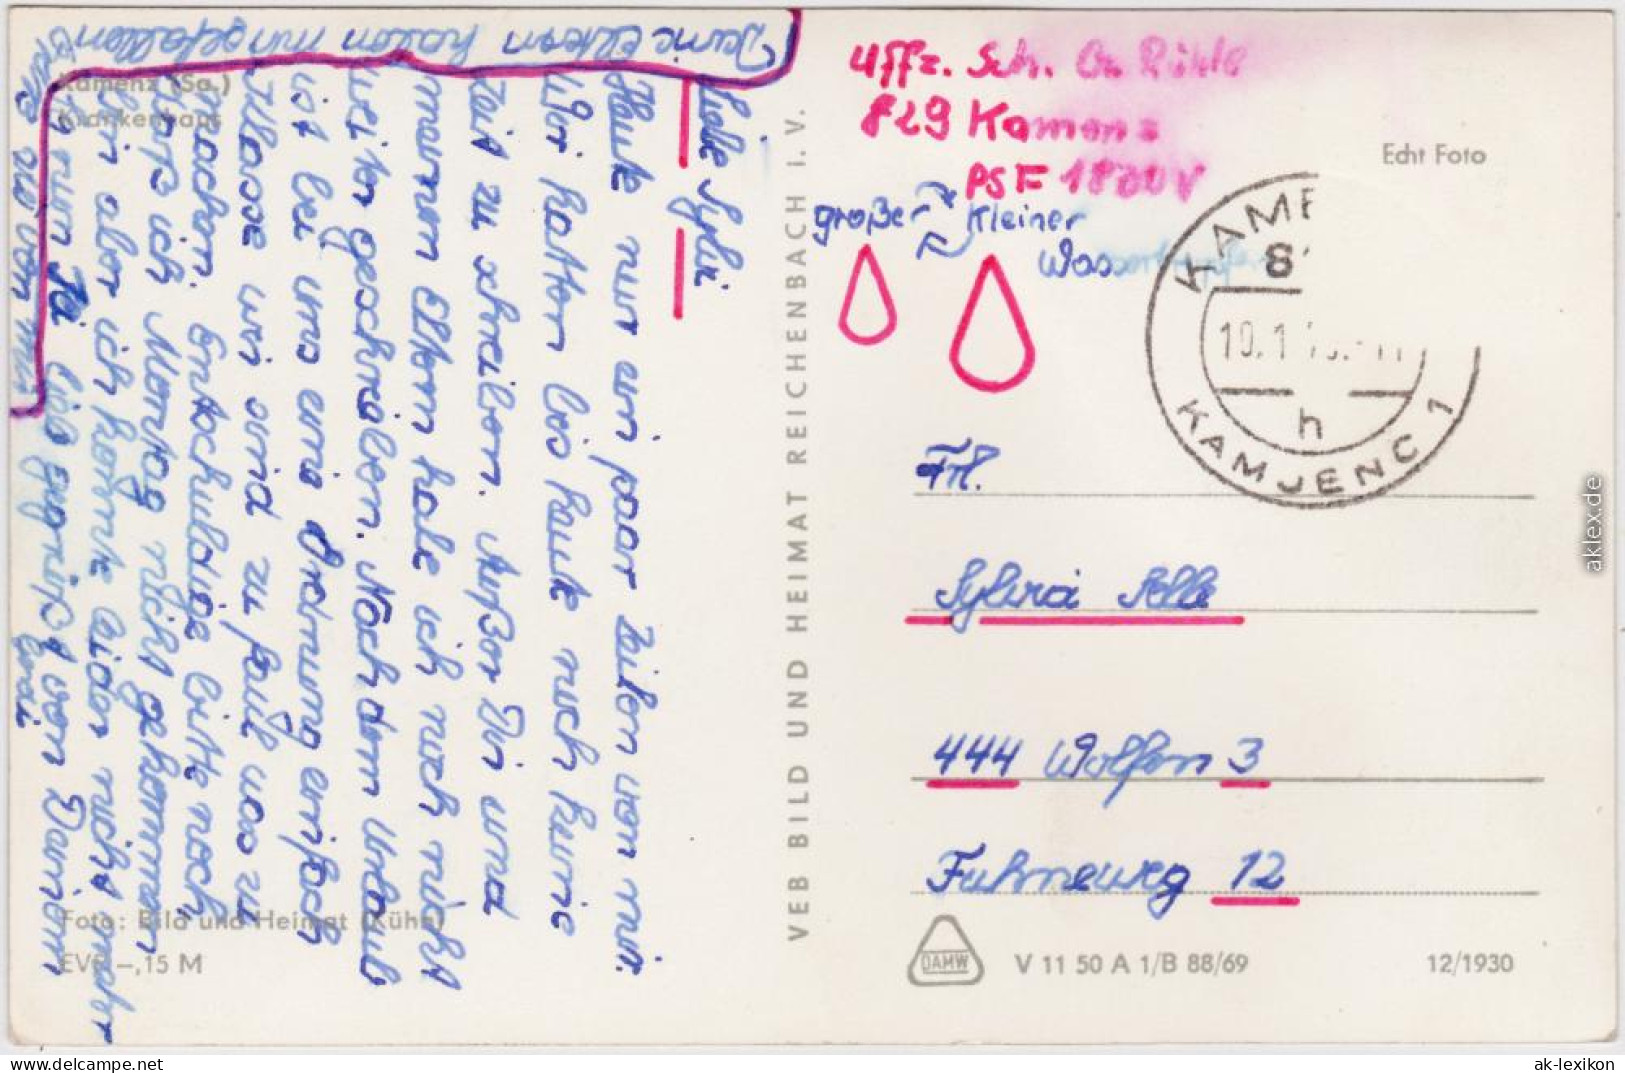 Liebe Sylvi
Heute nur ein paar Zeilen von mir.
Wir hatten bis heute noch keine
Zeit zu schreiben. Außer Dir und
meinen Eltern habe ich noch nicht
weiter geschrieben. Nach dem Urlaub
ist bei uns eine Ordnung einfach
Klasse wir sind zu faul was zu
machen. Entschuldige bitte noch,
daß ich Montag nicht gekommen
bin aber ich konnte leider nicht mehr
So nun sei lieb gegrüßt von Deinem
Gerdi
Deine Eltern haben mir gefallen
Grüße sie von mir
Kamenz (Sa.)
Krankenhaus
Foto: Bild und Heimat (Kühn)
EVP –,15 M
VEB BILD UND HEIMAT REICHENBACH I. V.
Uffz. Sch. G. Rühle
829 Kamenz
PSF 1870 V
Echt Foto
großer kleiner
Wassertropfen
KAME
8
10.1
h
KAMJENC 1
Frl.
Sylvia
444 Wolfen 3
Fuhneweg 12
DAMW
V 11 50 A 1/B 88/69
12/1930
aklex.de
www.delcampe.net
ak-lexikon